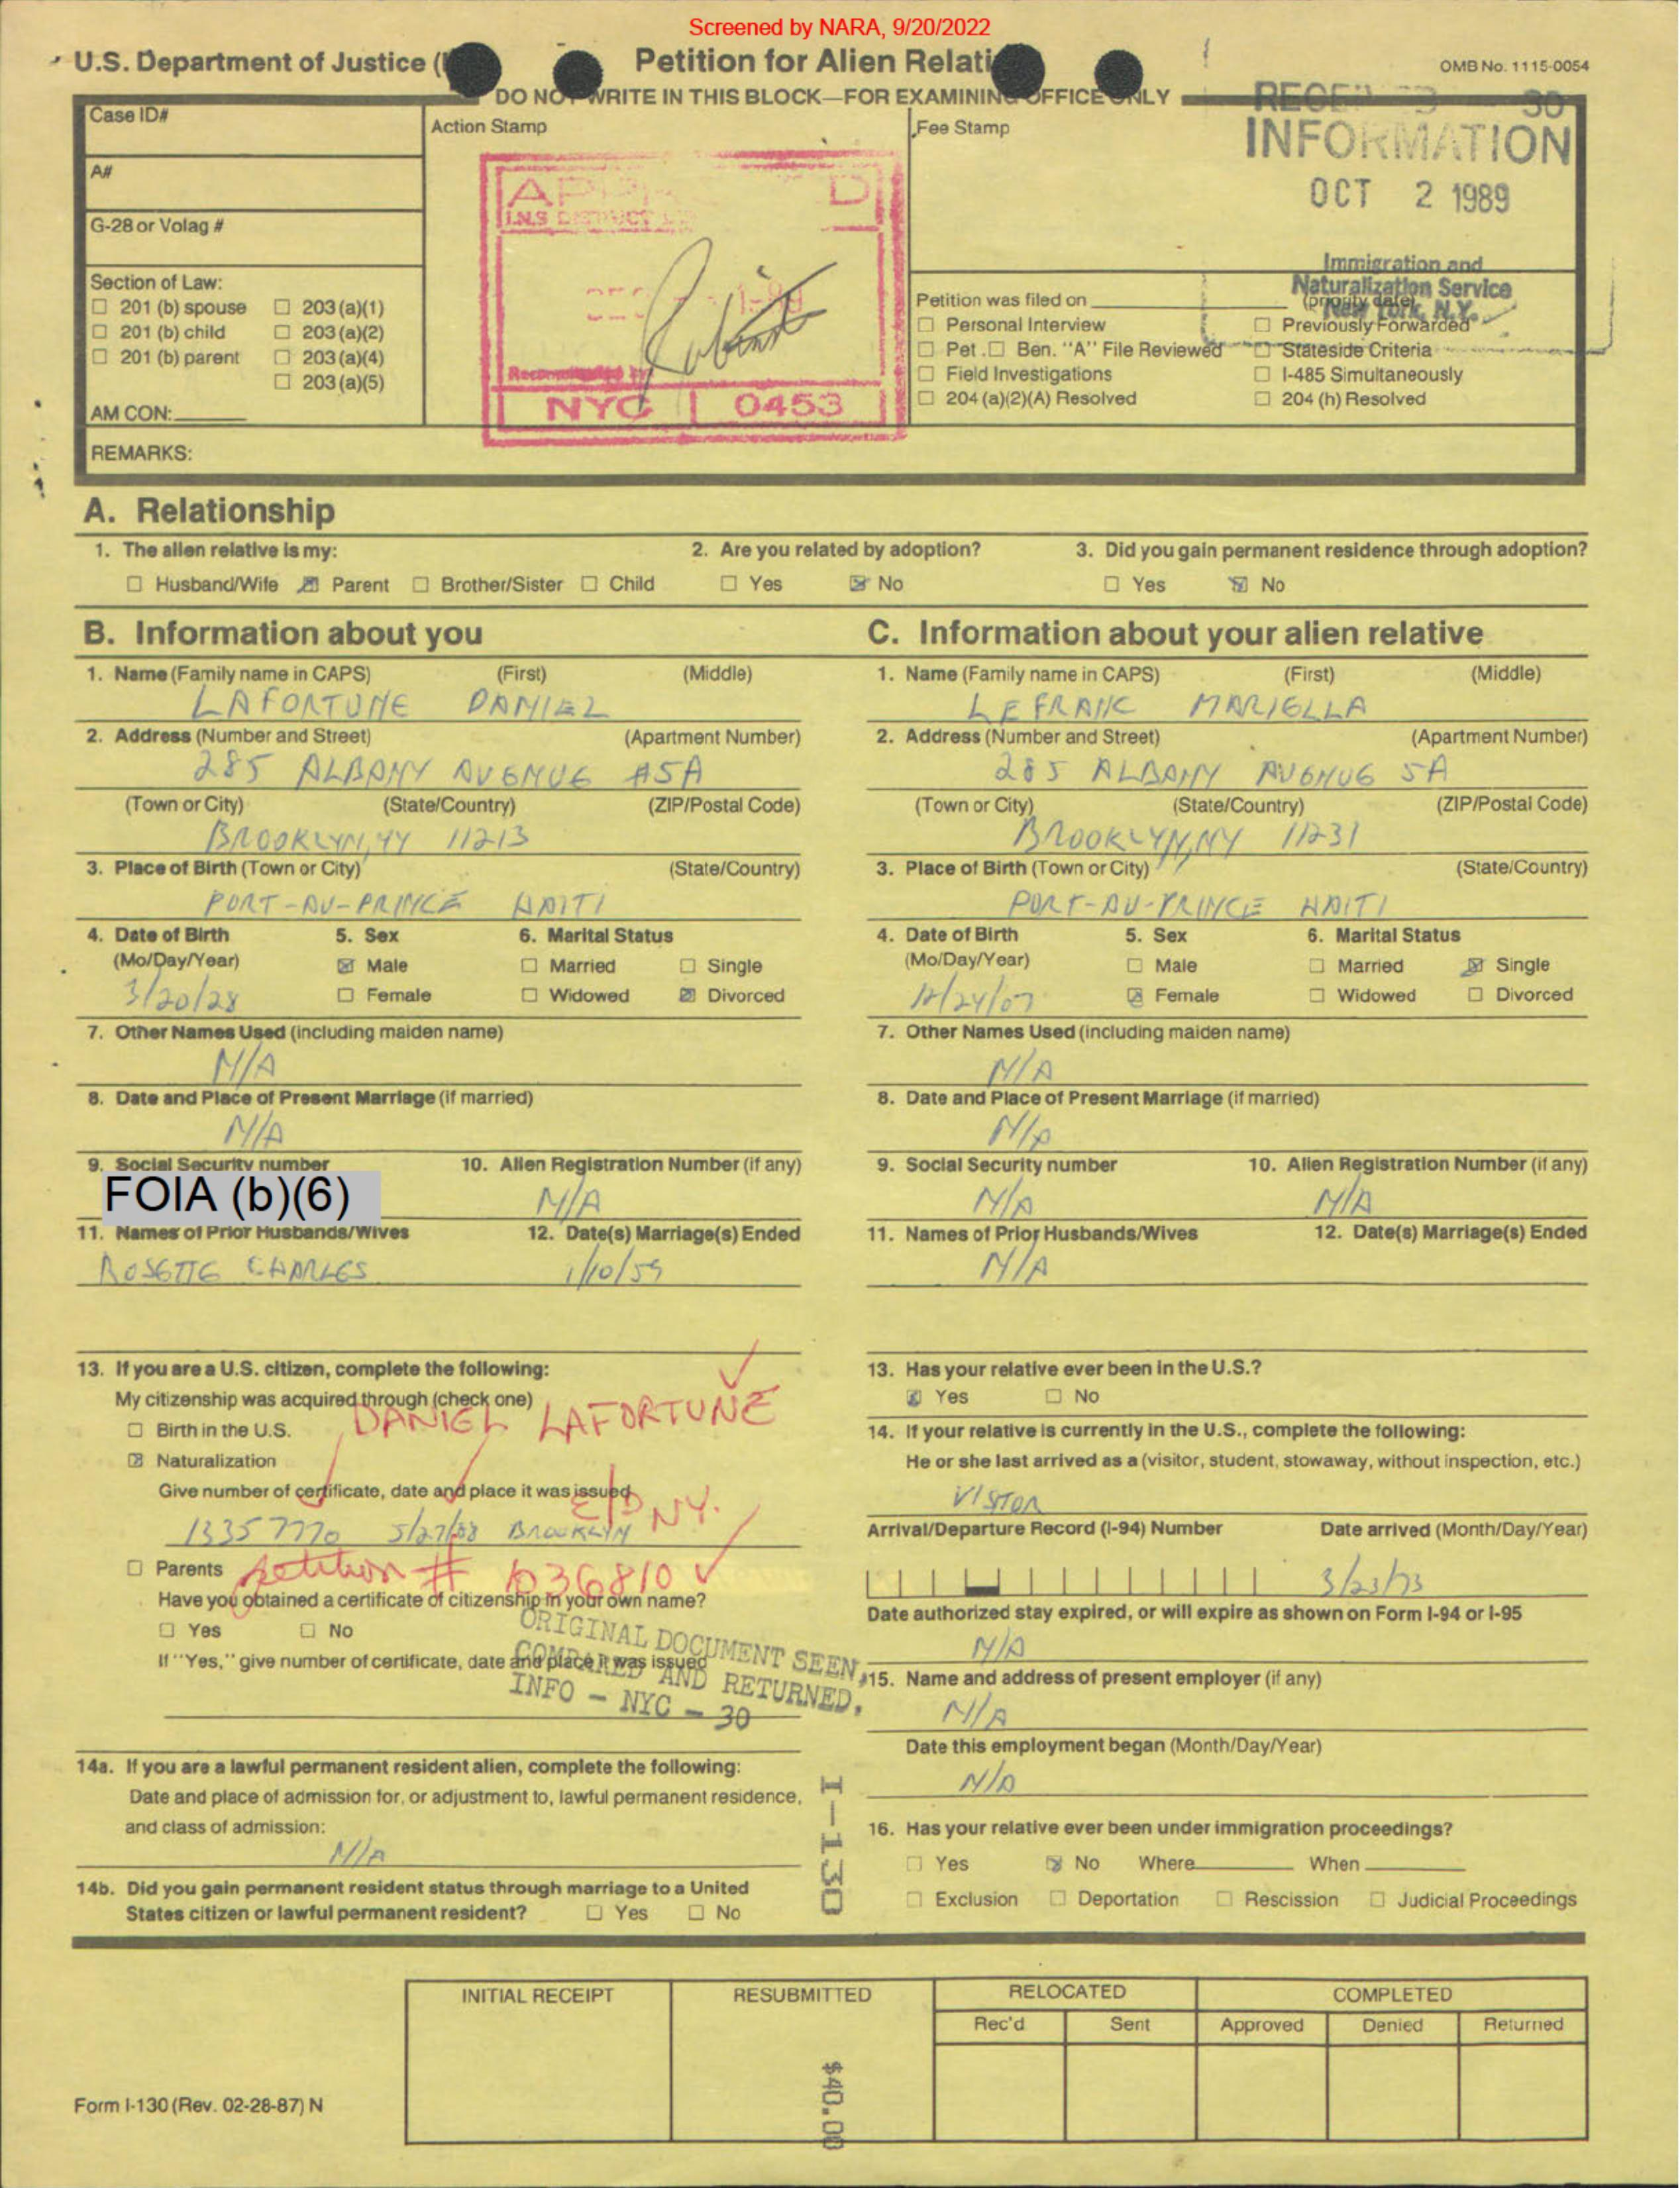 Screened by NARA, 9/20/2022
U.S. Department of Justice (
Petition for Alien Relati
OMB No. 1115-0054
DO NOT WRITE IN THIS BLOCK—FOR EXAMINING OFFICE ONLY
30
Case ID#
Action Stamp
Fee Stamp
INFORMATION
A#
OCT 2 1989
G-28 or Volag #
Immigration and
Naturalization Service
New York, N.Y.
Section of Law:
☐ 201 (b) spouse ☐ 203 (a)(1)
☐ 201 (b) child ☐ 203 (a)(2)
☐ 201 (b) parent ☐ 203 (a)(4)
☐ 203 (a)(5)
AM CON:
NYC 0453
Petition was filed on (priority date)
☐ Personal Interview ☐ Previously Forwarded
☐ Pet. ☐ Ben. "A" File Reviewed ☐ Stateside Criteria
☐ Field Investigations ☐ I-485 Simultaneously
☐ 204 (a)(2)(A) Resolved ☐ 204 (h) Resolved
REMARKS:
A. Relationship
1. The alien relative is my: 2. Are you related by adoption? 3. Did you gain permanent residence through adoption?
☐ Husband/Wife ☒ Parent ☐ Brother/Sister ☐ Child ☐ Yes ☒ No ☐ Yes ☒ No
B. Information about you
1. Name (Family name in CAPS) (First) (Middle)
LAFORTUNE DANIEL
2. Address (Number and Street) (Apartment Number)
285 ALBANY AVENUE #5A
(Town or City) (State/Country) (ZIP/Postal Code)
BROOKLYN, NY 11213
3. Place of Birth (Town or City) (State/Country)
PORT-AU-PRINCE HAITI
4. Date of Birth 5. Sex 6. Marital Status
(Mo/Day/Year) ☒ Male ☐ Married ☐ Single
3/20/28 ☐ Female ☐ Widowed ☒ Divorced
7. Other Names Used (including maiden name)
N/A
8. Date and Place of Present Marriage (if married)
N/A
9. Social Security number 10. Alien Registration Number (if any)
FOIA (b)(6) N/A
11. Names of Prior Husbands/Wives 12. Date(s) Marriage(s) Ended
ROSETTE CHARLES 1/10/59
13. If you are a U.S. citizen, complete the following:
My citizenship was acquired through (check one)
DANIEL LAFORTUNE
☐ Birth in the U.S.
☒ Naturalization
Give number of certificate, date and place it was issued
E/D NY.
13357770 5/27/88 BROOKLYN
☐ Parents
petition # 636810
Have you obtained a certificate of citizenship in your own name?
☐ Yes ☐ No
If "Yes," give number of certificate, date and place it was issued
ORIGINAL DOCUMENT SEEN,
COMPARED AND RETURNED.
INFO - NYC - 30
14a. If you are a lawful permanent resident alien, complete the following:
Date and place of admission for, or adjustment to, lawful permanent residence,
and class of admission:
N/A
14b. Did you gain permanent resident status through marriage to a United
States citizen or lawful permanent resident? ☐ Yes ☐ No
I-130
C. Information about your alien relative
1. Name (Family name in CAPS) (First) (Middle)
LEFRANC MARIELLA
2. Address (Number and Street) (Apartment Number)
285 ALBANY AVENUE 5A
(Town or City) (State/Country) (ZIP/Postal Code)
BROOKLYN, NY 11231
3. Place of Birth (Town or City) (State/Country)
PORT-AU-PRINCE HAITI
4. Date of Birth 5. Sex 6. Marital Status
(Mo/Day/Year) ☐ Male ☐ Married ☒ Single
12/24/07 ☒ Female ☐ Widowed ☐ Divorced
7. Other Names Used (including maiden name)
N/A
8. Date and Place of Present Marriage (if married)
N/A
9. Social Security number 10. Alien Registration Number (if any)
N/A N/A
11. Names of Prior Husbands/Wives 12. Date(s) Marriage(s) Ended
N/A
13. Has your relative ever been in the U.S.?
☒ Yes ☐ No
14. If your relative is currently in the U.S., complete the following:
He or she last arrived as a (visitor, student, stowaway, without inspection, etc.)
VISTOR
Arrival/Departure Record (I-94) Number Date arrived (Month/Day/Year)
3/23/73
Date authorized stay expired, or will expire as shown on Form I-94 or I-95
N/A
15. Name and address of present employer (if any)
N/A
Date this employment began (Month/Day/Year)
N/A
16. Has your relative ever been under immigration proceedings?
☐ Yes ☒ No Where When
☐ Exclusion ☐ Deportation ☐ Rescission ☐ Judicial Proceedings
INITIAL RECEIPT RESUBMITTED RELOCATED COMPLETED
Rec'd Sent Approved Denied Returned
$40.00
Form I-130 (Rev. 02-28-87) N